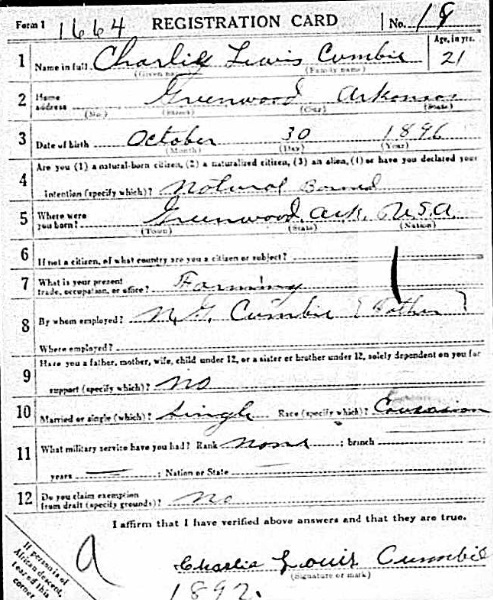 Form 1 1664 REGISTRATION CARD No. 19
1 Name in full Charlie Lewis Cumbie Age, in yrs. 21
(Given name) (Family name)
2 Home address Greenwood Arkansas
(No.) (Street) (City) (State)
3 Date of birth October 30 1896
(Month) (Day) (Year)
4 Are you (1) a natural-born citizen, (2) a naturalized citizen, (3) an alien, (4) or have you declared your
intention (specify which)? Natural Borned
5 Where were you born? Greenwood, Ark. U.S.A
(Town) (State) (Nation)
6 If not a citizen, of what country are you a citizen or subject?
7 What is your present trade, occupation, or office? Farming
8 By whom employed? N. G. Cumbie (Father)
Where employed?
9 Have you a father, mother, wife, child under 12, or a sister or brother under 12, solely dependent on you for
support (specify which)? No
10 Married or single (which)? Single Race (specify which)? Caucasian
11 What military service have you had? Rank None ; branch ;
years ; Nation or State
12 Do you claim exemption from draft (specify grounds)? No
I affirm that I have verified above answers and that they are true.
If person is of African descent, tear off this corner
a
Charlie Louis Cumbie
(Signature or mark)
1892.